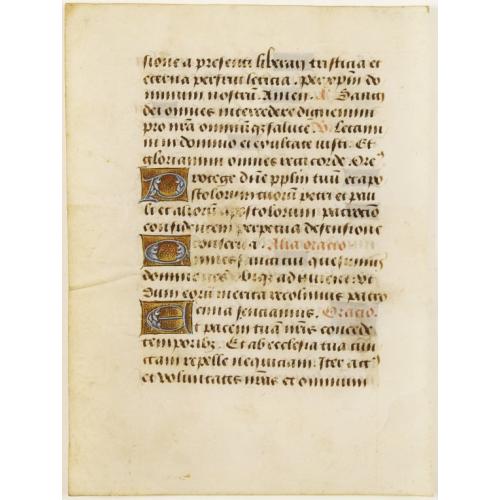 sione a presenti liberari tristicia et
eterna perfrui leticia. Per xp̄m do
minum nostrū. Amen. A. Sancti
dei omnes intercedere dignemini
pro nr̄a omniūq; salute. V. Letami
ni in domino et exultate iusti. Et
gloriamini omnes recti corde. Ore
Protege dn̄e pplm̄ tuū et apo
stolorum tuorū petri et pauli
li et alioꝝ apostolorum patrocīo
confidentem perpetua defensione
conserua. Alia oracio
Omnes sancti tui quesumus
domine nos ubiq; adiuuent ut
dum eorū merita recolimus patro
cinia senciamus. Oracio.
Et pacem tuā nr̄is concede
temporibꝫ. Et ab ecclesia tua cun
ctam repelle nequiciam. Iter act
et voluntates nr̄as et omnium